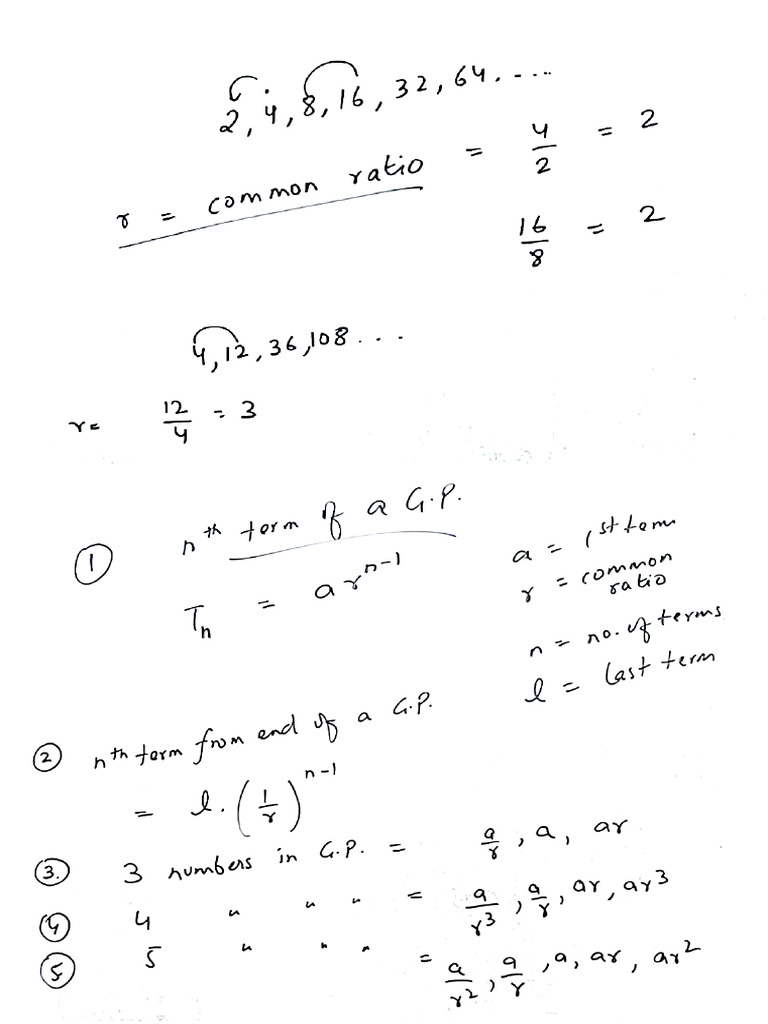 2, 4, 8, 16, 32, 64. - ...
r = common ratio = 4/2 = 2
16/8 = 2
4, 12, 36, 108 . . .
r= 12/4 = 3
① nth term of a G.P.
Tn = ar^(n-1)
a = 1st term
r = common ratio
n = no. of terms
l = last term
② nth term from end of a G.P.
= l. (1/r)^(n-1)
③. 3 numbers in G.P. = a/r, a, ar
④ 4 " " " = a/r³, a/r, ar, ar³
⑤ 5 " " " = a/r², a/r, a, ar, ar²